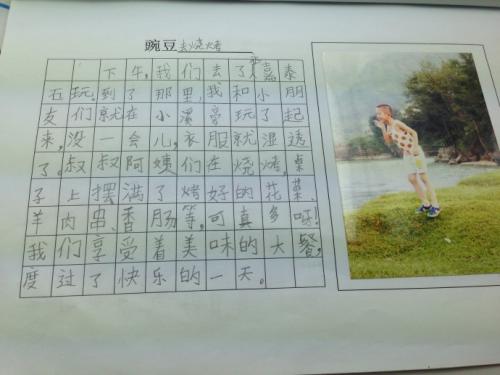 豌豆去烧烤
下午,我们去了嘉泰
玩。到了那里,我和小朋
友们就在小溪旁玩了起
来,没一会儿,衣服就湿透
了。叔叔阿姨们在烧烤,桌
子上摆满了烤好的花菜、
羊肉串、香肠等,可真多呀!
我们享受着美味的大餐,
度过了快乐的一天。